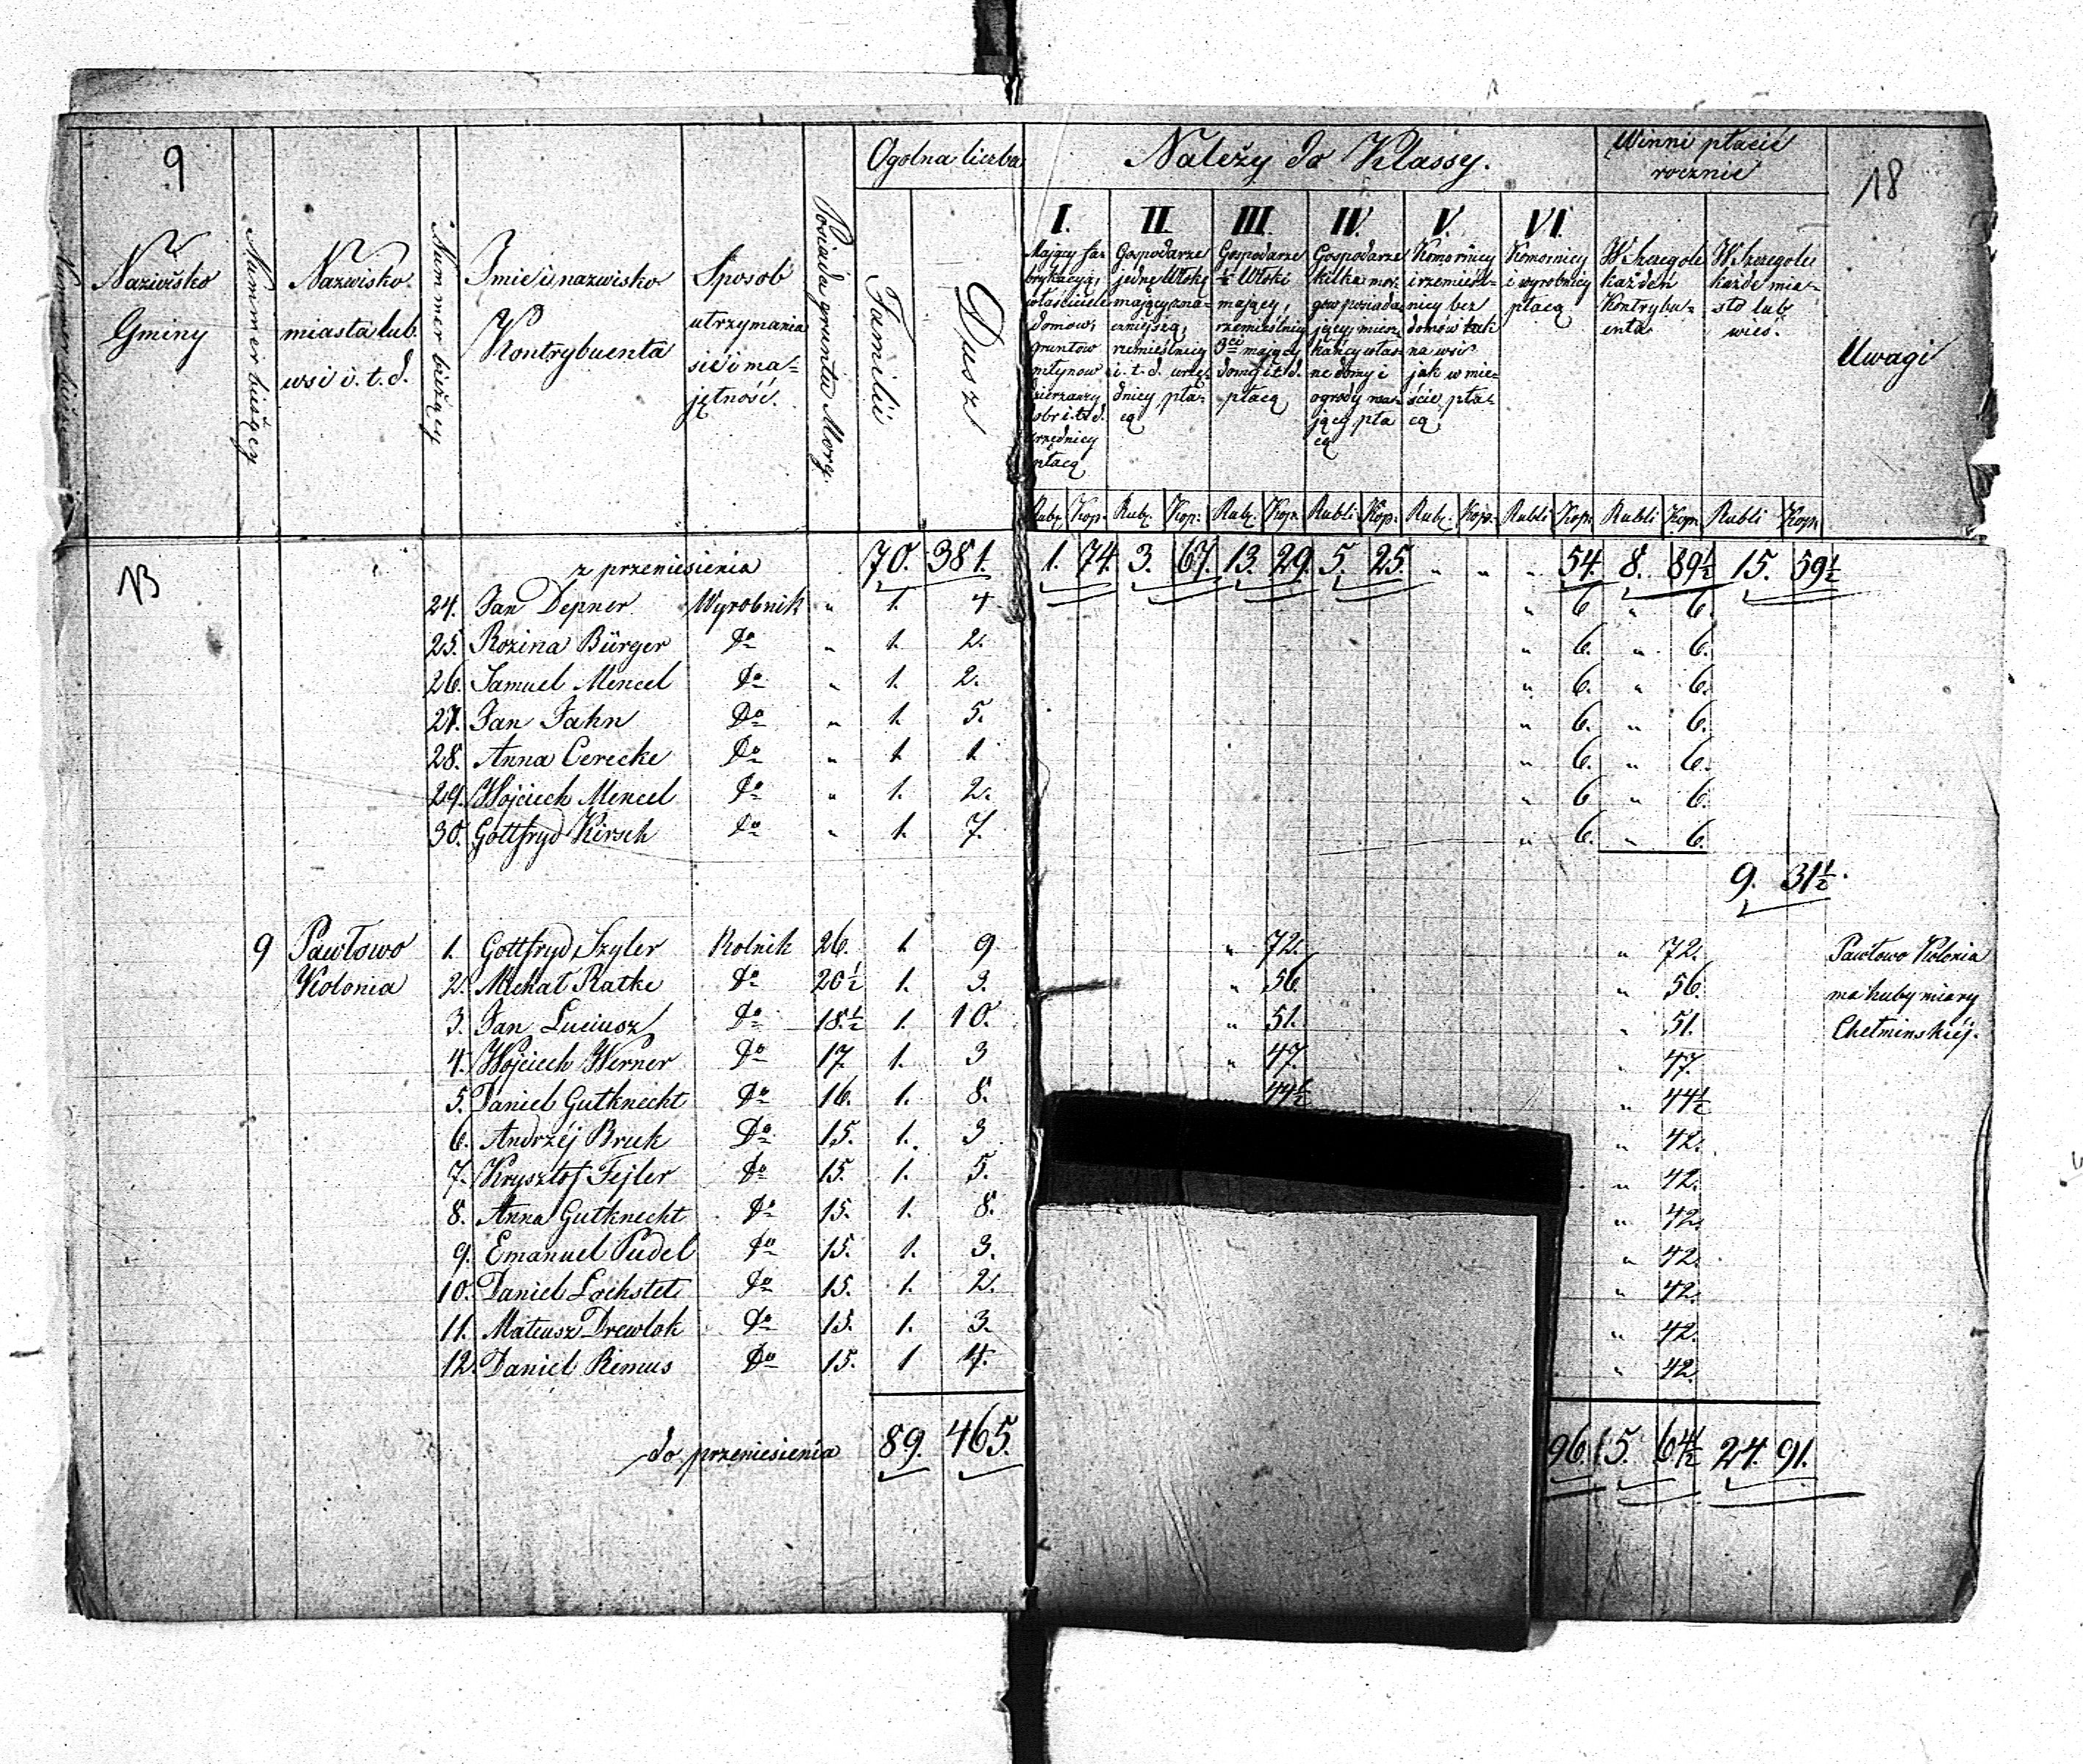 9
18
Nazwisko Gminy
Nummer bieżący
Nazwisko miasta lub wsi i.t.d.
Nummer bieżący
Imie i nazwisko Kontrybuenta
Sposob utrzymania sie i majętność.
Posiada gruntu Morg.
Ogolna liczba
Familii
Dusz
Należy do Klassy.
I.
Mający fabrykacyją, właściciele domow, gruntow młynow dzierzawcy dobr i.t.d. urzędnicy płacą
II.
Gospodarze jedne Włokę mający znaczniejszą, rzemieślnicy i.t.d. urzędnicy płacą
III.
Gospodarze ½ Włoki mający, rzemieślnicy mający domy i.t.d. płacą
IV.
Gospodarze kilka morgow posiadający, mieszkańcy własne domy i ogrody mający płacą
V.
Komornicy i rzemieślnicy bez domów tak na wsi jak w mieście płacą
VI.
Komornicy i wyrobnicy płacą
Winni płacić rocznie
W Szczegole każden Kontrybuenta
W Szczegole każde miasto lub wieś.
Uwagi
Rubl. Kop. Rubl. Kop. Rubl. Kop. Rubli Kop. Rubl. Kop. Rubli Kop. Rubli Kop. Rubli Kop.
13 z przeniesienia 70. 381. 1. 74. 3. 67. 13. 29. 5. 25. " " " 54. 8. 89½ 15. 59½
24. Jan Depner Wyrobnik " 1. 4 " 6 " 6.
25. Rozina Bürger Do " 1. 2. " 6. " 6.
26. Samuel Mencel Do " 1. 2. " 6. " 6.
27. Jan Jahn Do " 1. 5. " 6. " 6.
28. Anna Cerecke Do " 1 1 " 6. " 6.
29. Wojciech Mencel Do " 1. 2. " 6 " 6.
30. Gottfryd Kirsch Do " 1. 7. " 6. " 6.
9. 31½.
9 Pawłowo 1. Gottfryd Szyler Rolnik 26. 1 9 " 72. " 72. Pawłowo Kolonia
Kolonia 2. Michał Ratke Do 20½ 1. 3. " 56 " 56. ma huby miary
3. Jan Luciusz Do 18½ 1. 10. " 51. " 51. Chełminskiéj.
4. Wojciech Werner Do 17 1. 3 " 47. " 47.
5. Daniel Gutknecht Do 16. 1. 8. 44½ " 44½
6. Andrzéj Bruk Do 15. 1. 3 " 42.
7. Krysztof Fejler Do 15. 1. 5. " 42.
8. Anna Gutknecht Do 15. 1. 8. " 42.
9. Emanuel Pudel Do 15. 1. 3. " 42.
10. Daniel Lochstet Do 15. 1. 2. " 42.
11. Mateusz Drewlok Do 15. 1. 3. " 42.
12. Daniel Remus Do 15. 1 4. " 42.
do przeniesienia 89. 465. 96. 15. 64½ 24. 91.